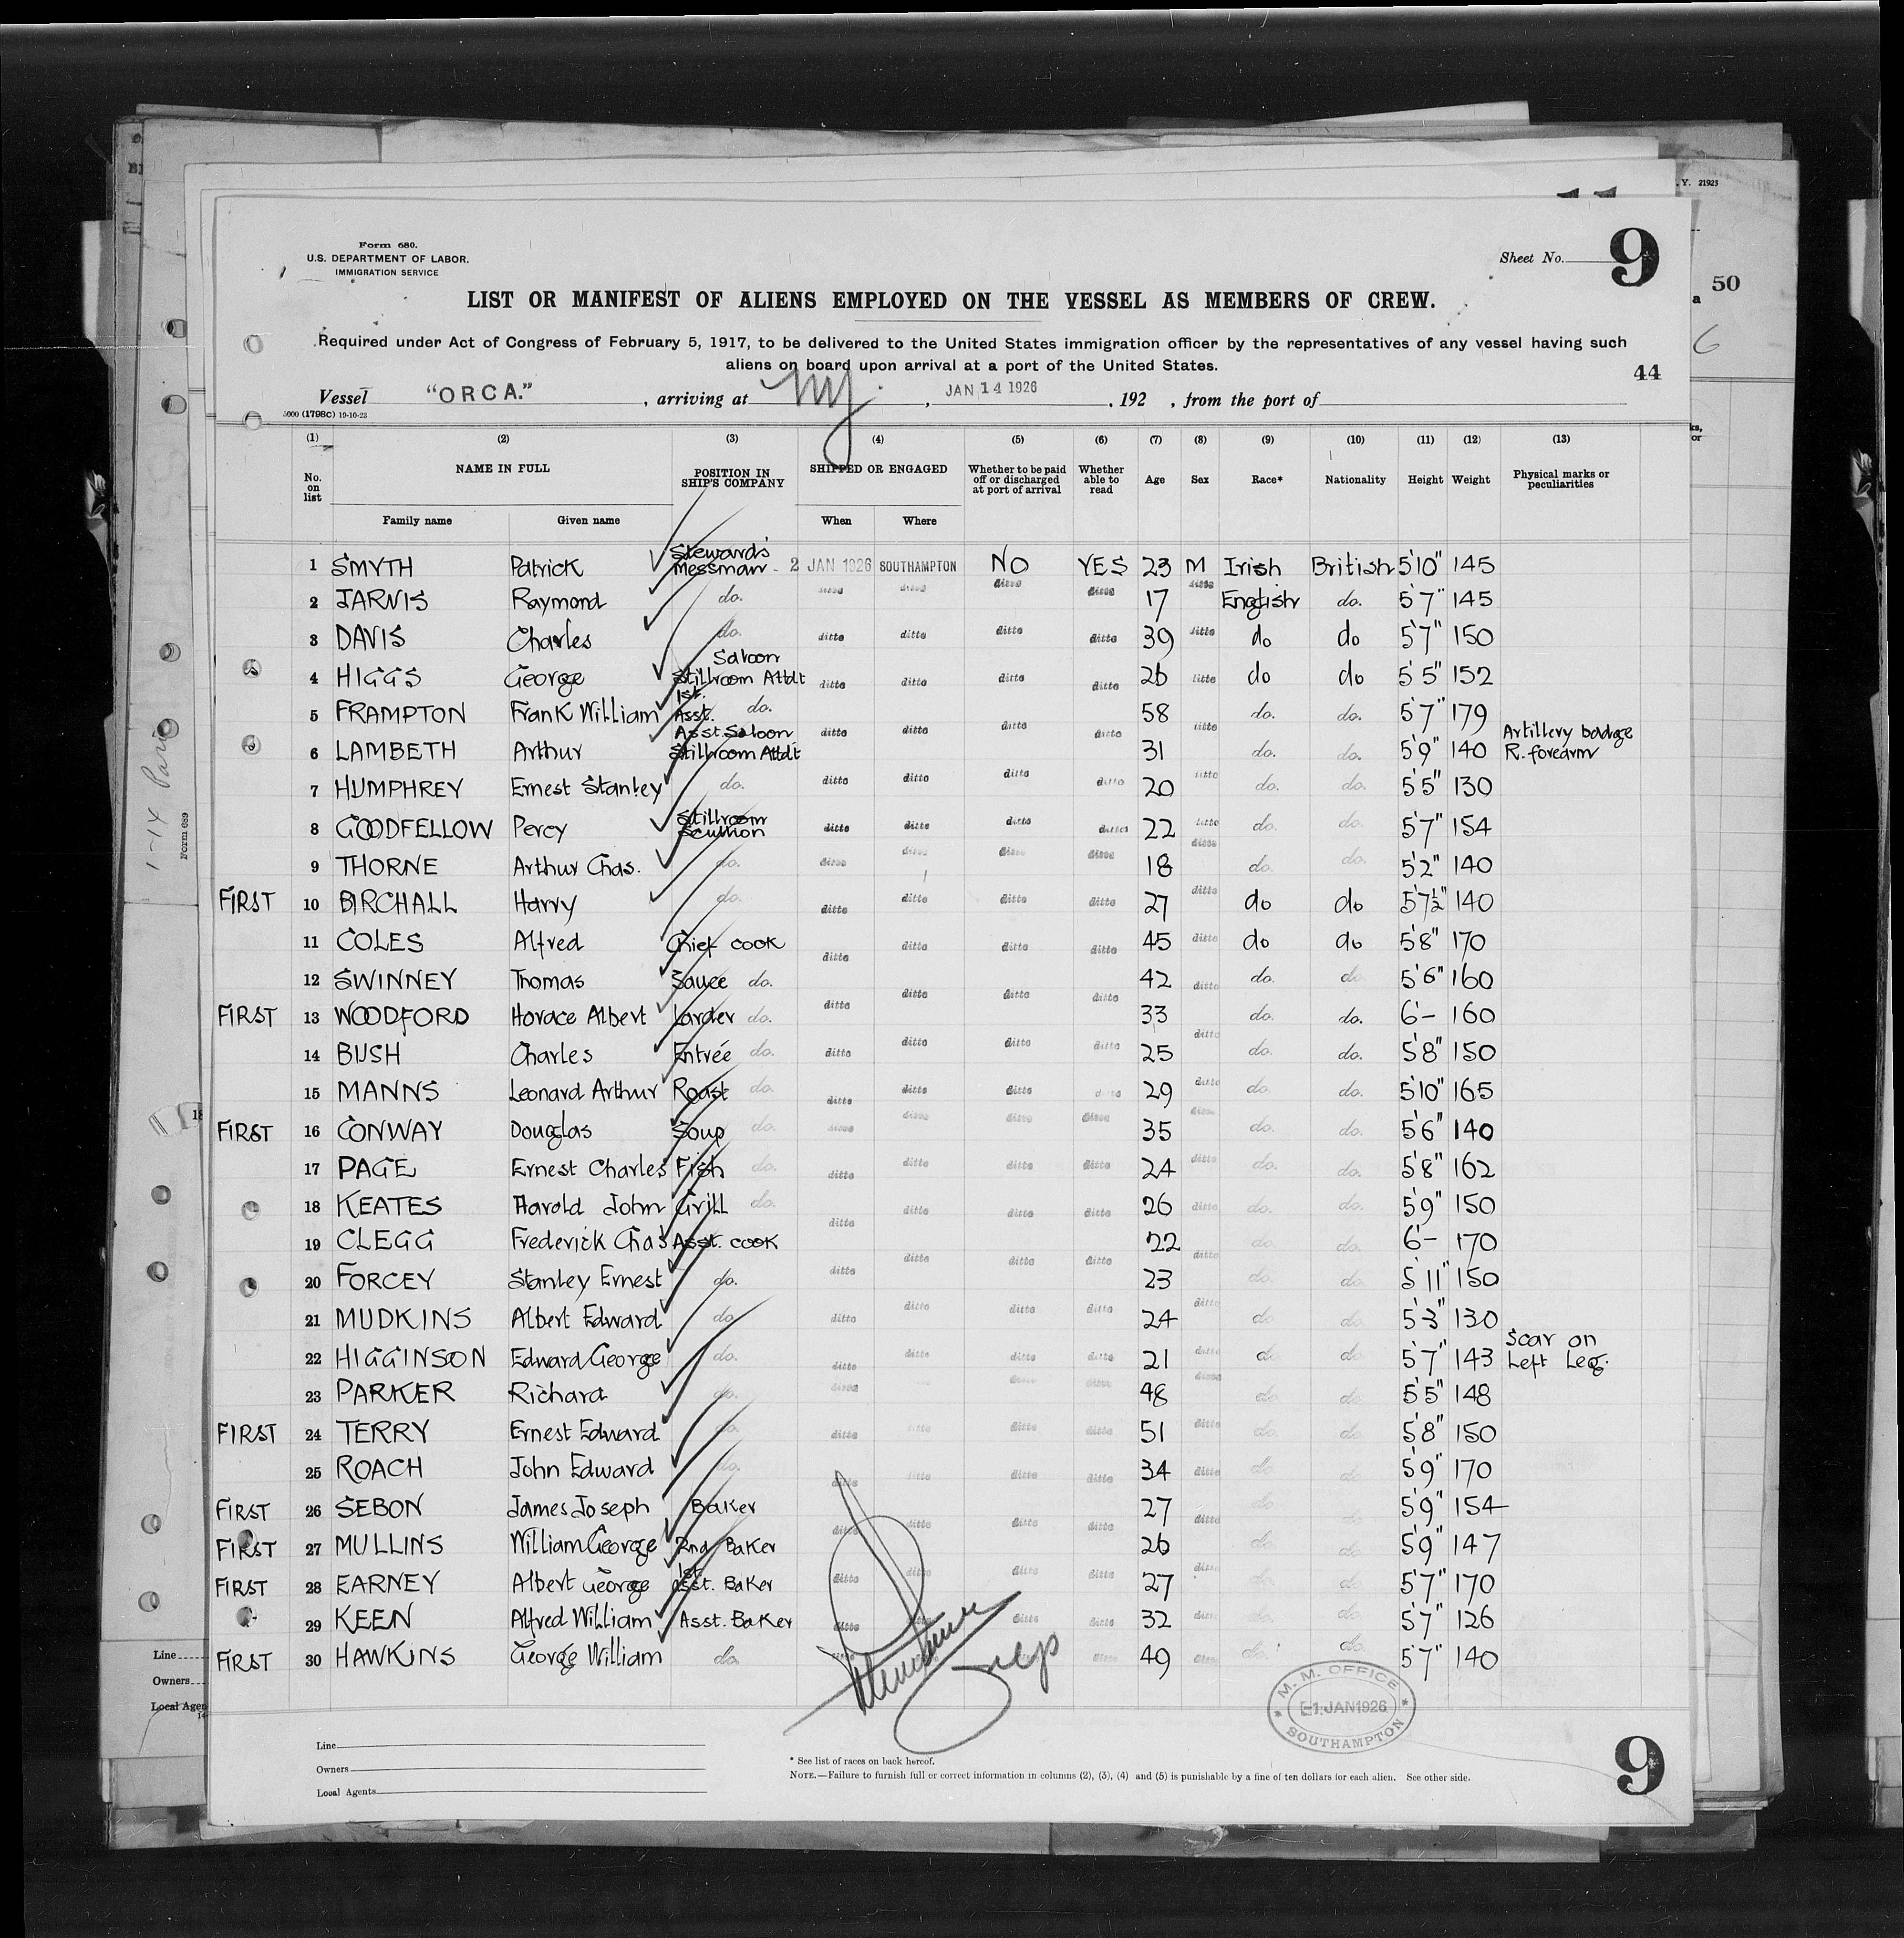 Y. 21923
50
a
6
Form 680.
U.S. DEPARTMENT OF LABOR.
IMMIGRATION SERVICE
Sheet No. 9
LIST OR MANIFEST OF ALIENS EMPLOYED ON THE VESSEL AS MEMBERS OF CREW.
Required under Act of Congress of February 5, 1917, to be delivered to the United States immigration officer by the representatives of any vessel having such
aliens on board upon arrival at a port of the United States.
44
Vessel "ORCA." , arriving at NY. , JAN 14 1926 , 192 , from the port of
5000 (1798C) 19-10-23
(1) (2) (3) (4) (5) (6) (7) (8) (9) (10) (11) (12) (13)
No. on list NAME IN FULL POSITION IN SHIP'S COMPANY SHIPPED OR ENGAGED Whether to be paid off or discharged at port of arrival Whether able to read Age Sex Race* Nationality Height Weight Physical marks or peculiarities
Family name Given name When Where
1 SMYTH Patrick Stewards' Messman 2 JAN 1926 SOUTHAMPTON NO YES 23 M Irish British 5'10" 145
2 JARVIS Raymond do. ditto ditto ditto ditto 17 ditto English do. 5'7" 145
3 DAVIS Charles do. ditto ditto ditto ditto 39 ditto do do 5'7" 150
4 HIGGS George Saloon Stillroom Attdt ditto ditto ditto ditto 26 ditto do do 5'5" 152
5 FRAMPTON Frank William 1st. Asst. do. 58 do. do. 5'7" 179
6 LAMBETH Arthur Asst. Saloon Stillroom Attdt ditto ditto ditto ditto 31 ditto do. do. 5'9" 140 Artillery badge R. forearm
7 HUMPHREY Ernest Stanley do. ditto ditto ditto ditto 20 ditto do. do. 5'5" 130
8 GOODFELLOW Percy Stillroom Scullion ditto ditto ditto ditto 22 ditto do. do. 5'7" 154
9 THORNE Arthur Chas. do. ditto ditto ditto ditto 18 ditto do. do. 5'2" 140
FIRST 10 BIRCHALL Harry do. ditto ditto ditto ditto 27 ditto do do 5'7½" 140
11 COLES Alfred Chief cook ditto ditto ditto ditto 45 ditto do do 5'8" 170
12 SWINNEY Thomas Sauce do. ditto ditto ditto 42 ditto do. do. 5'6" 160
FIRST 13 WOODFORD Horace Albert Larder do. ditto 33 do. do. 6'- 160
14 BUSH Charles Entrée do. ditto ditto ditto ditto 25 ditto do. do. 5'8" 150
15 MANNS Leonard Arthur Roast do. ditto ditto ditto ditto 29 ditto do. do. 5'10" 165
FIRST 16 CONWAY Douglas Soup do. ditto ditto ditto ditto 35 ditto do. do. 5'6" 140
17 PAGE Ernest Charles Fish do. ditto ditto ditto ditto 24 ditto do. do. 5'8" 162
18 KEATES Harold John Grill do. ditto ditto ditto ditto 26 ditto do. do. 5'9" 150
19 CLEGG Frederick Chas Asst. cook 22 do. do. 6'- 170
20 FORCEY Stanley Ernest do. ditto ditto ditto ditto 23 ditto do. do. 5'11" 150
21 MUDKINS Albert Edward do. ditto ditto ditto ditto 24 ditto do do. 5'3" 130
22 HIGGINSON Edward George do. ditto ditto ditto ditto 21 ditto do do 5'7" 143 Scar on Left Leg.
23 PARKER Richard do. ditto ditto ditto ditto 48 ditto do. do. 5'5" 148
FIRST 24 TERRY Ernest Edward do. ditto ditto ditto ditto 51 ditto do. do. 5'8" 150
25 ROACH John Edward do. ditto ditto ditto ditto 34 ditto do. do. 5'9" 170
FIRST 26 SEBON James Joseph Baker 27 ditto do do 5'9" 154
FIRST 27 MULLINS William George 2nd Baker ditto ditto ditto ditto 26 do. do. 5'9" 147
FIRST 28 EARNEY Albert George 1st Asst. Baker ditto ditto ditto ditto 27 ditto do. do. 5'7" 170
29 KEEN Alfred William Asst. Baker ditto ditto ditto ditto 32 ditto do. do. 5'7" 126
FIRST 30 HAWKINS George William do. ditto ditto ditto ditto 49 ditto do. do. 5'7" 140
M. M. OFFICE
-1 JAN 1926
SOUTHAMPTON
Line
Owners
Local Agents
* See list of races on back hereof.
NOTE.—Failure to furnish full or correct information in columns (2), (3), (4) and (5) is punishable by a fine of ten dollars for each alien. See other side.
9
1-14 Paris
Form 689
18
Line
Owners
Local Agen